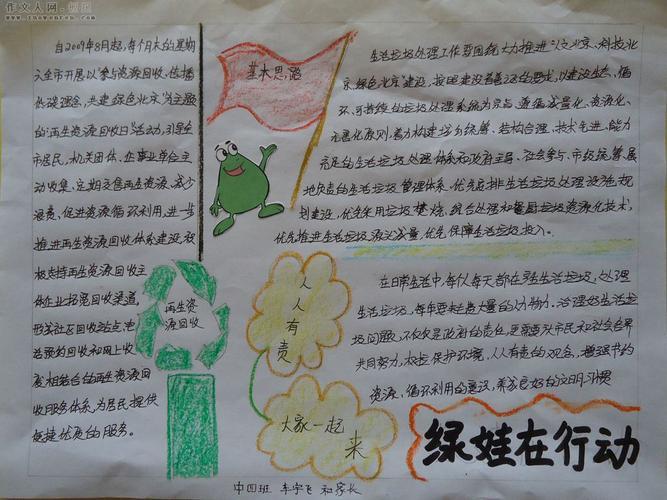 作文人网
www.zuowenren.com
自2009年8月起,每个月大的星期
六全市开展以“参与资源回收、传播
低碳理念,共建绿色北京”为主题
的“再生资源回收日”活动,引导全
市居民,机关团体、企事业单位主
动收集、定期交售再生资源,减少
浪费,促进资源循环利用,进一步
推进再生资源回收体系建设,积
极支持再生资源回收主
体企业拓宽回收渠道,
形成社区回收站点、电
话预约回收和网上收
废相结合的再生资源回
收服务体系,为居民提供
便捷优质的服务。
基本思路
再生资
源回收
人
人
有
责
大家一起
来
生活垃圾处理工作要围绕大力推进“人文北京、科技北
京、绿色北京”建设,按照建设
以建设生态、循
环、可持续的垃圾处理系统为宗旨,遵循减量化、资源化、
无害化原则,着力构建城乡统筹、结构合理、技术先进、能力
充足的生活垃圾处理体系和政府主导、社会参与、市级统筹、属
地负责的生活垃圾管理体系,优先安排生活垃圾处理设施规
划建设,优先采用垃圾焚烧、综合处理和餐厨垃圾资源化技术,
优先推进生活垃圾源头减量,优先保障生活垃圾投入。
在日常生活中,每人每天都在产生生活垃圾,处理
生活垃圾,每年要耗费大量的人力物力。治理好生活垃
圾问题,不仅仅是政府的责任,更需要天市民和社会各界
共同努力,树立保护环境,人人有责的观念,增强节约
资源、循环利用的意识,养成良好的文明习惯
绿娃在行动
中四班 李宇飞 和家长